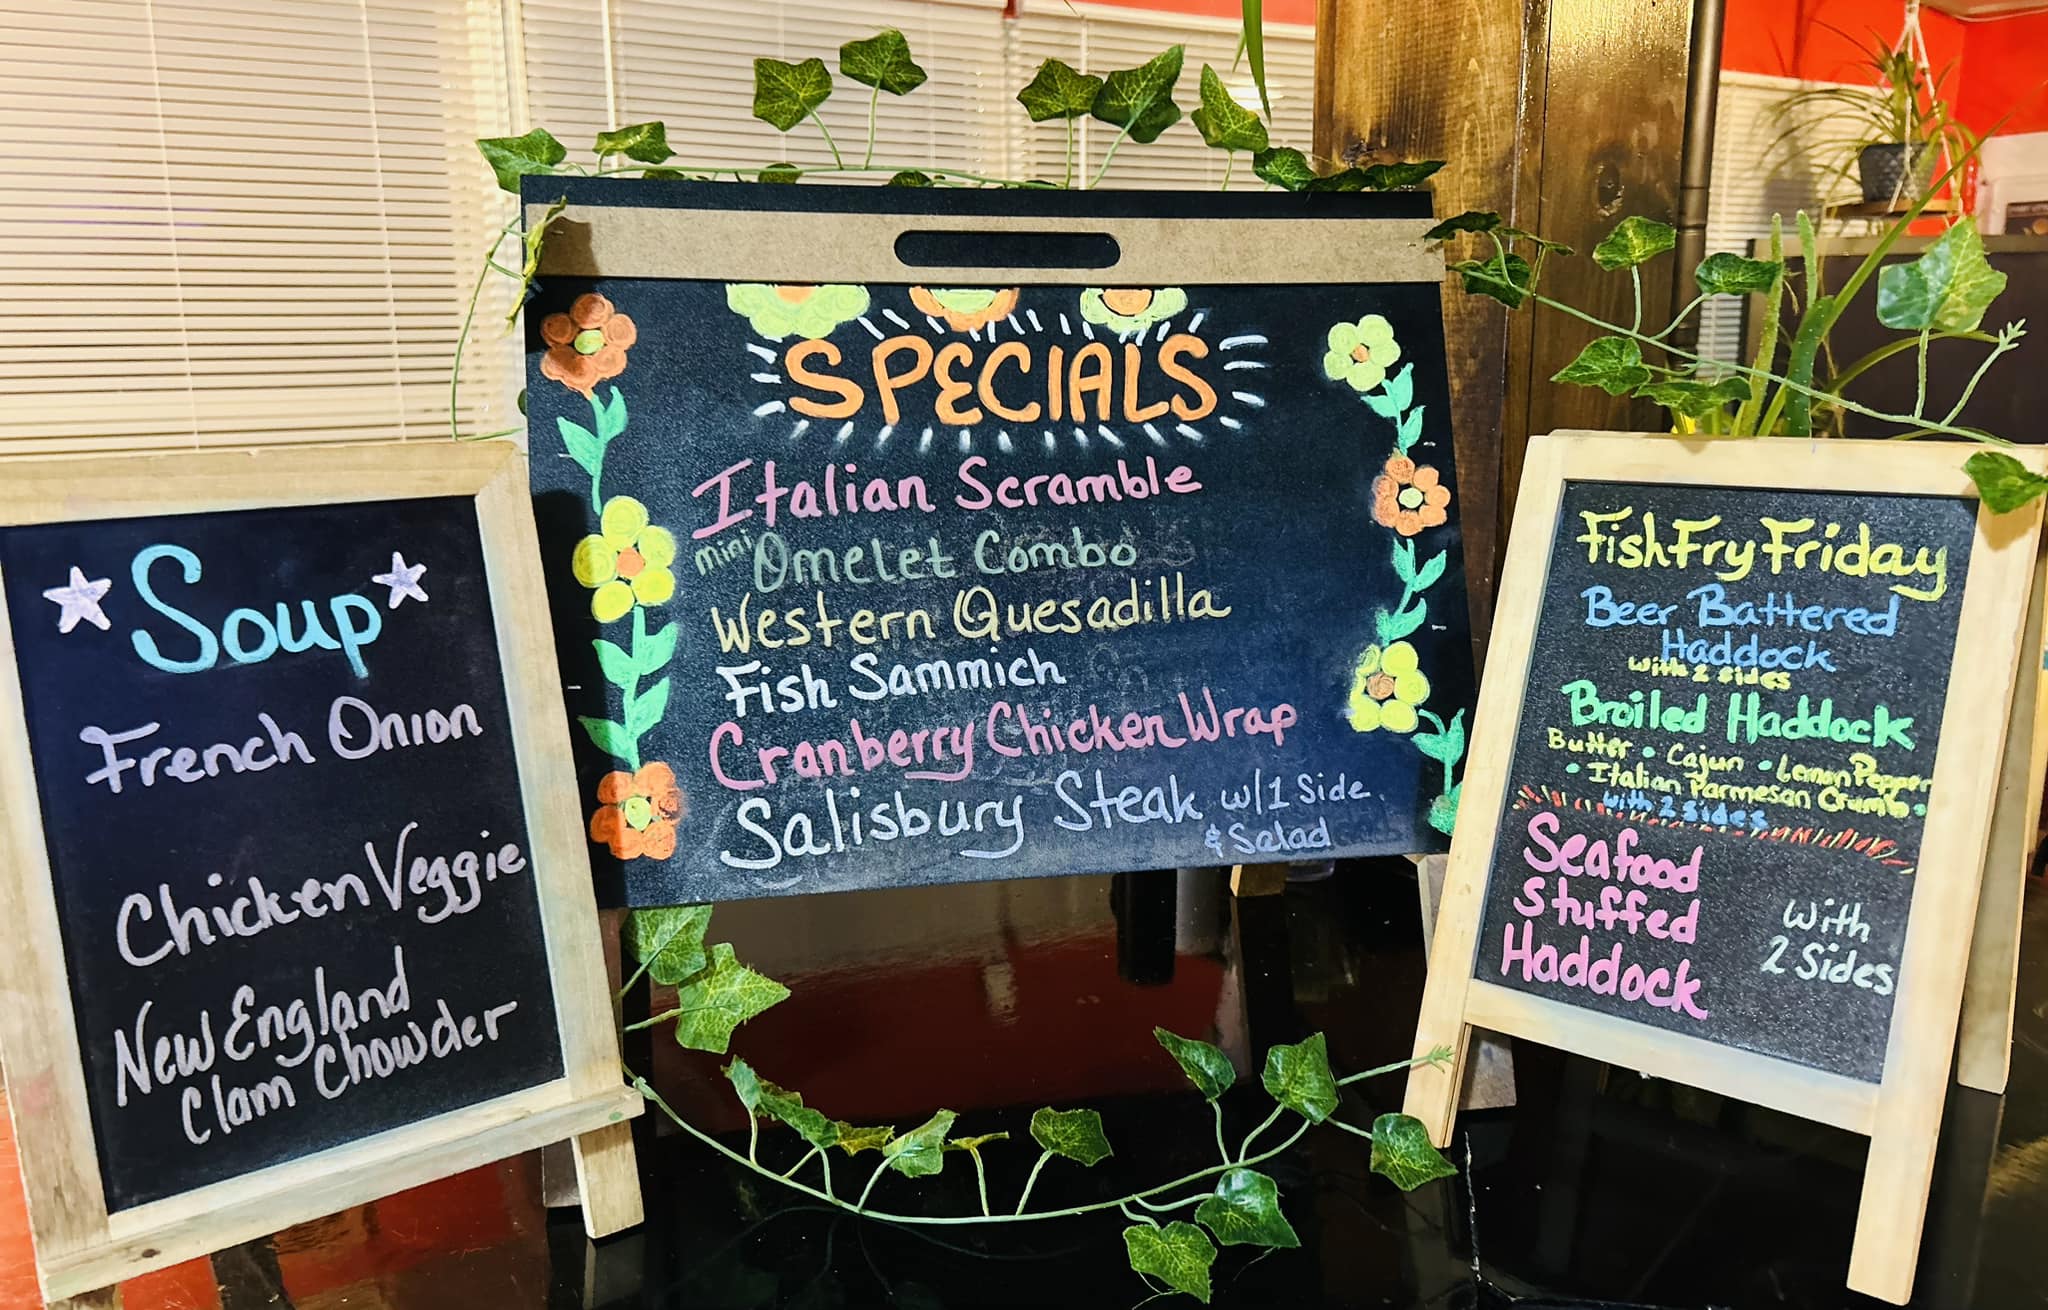 Soup
French Onion
Chicken Veggie
New England
Clam Chowder
SPECIALS
Italian Scramble
mini Omelet Combo
Western Quesadilla
Fish Sammich
Cranberry Chicken Wrap
Salisbury Steak w/1 Side
& Salad
Fish Fry Friday
Beer Battered
Haddock
with 2 sides
Broiled Haddock
Butter • Cajun • Lemon Pepper
• Italian Parmesan Crumb •
with 2 sides
Seafood
Stuffed
Haddock
With
2 Sides